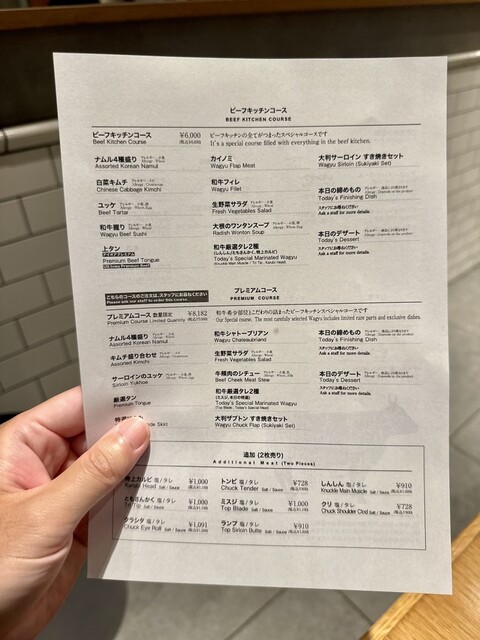 ビーフキッチンコース
BEEF KITCHEN COURSE
ビーフキッチンコース ¥6,000
Beef Kitchen Course
ビーフキッチンの全てがつまったスペシャルコースです
It's a special course filled with everything in the beef kitchen.
ナムル4種盛り
Assorted Korean Namul
カイノミ
Wagyu Flap Meat
大判サーロイン すき焼きセット
Wagyu Sirloin (Sukiyaki Set)
白菜キムチ
Chinese Cabbage Kimchi
和牛フィレ
Wagyu Fillet
本日の締めもの
Today's Finishing Dish
スタッフにお尋ねください
Ask a staff for more details.
ユッケ
Beef Tartar
生野菜サラダ
Fresh Vegetables Salad
和牛握り
Wagyu Beef Sushi
大根のワンタンスープ
Radish Wonton Soup
本日のデザート
Today's Dessert
スタッフにお尋ねください
Ask a staff for more details.
上タン
Premium Beef Tongue
和牛厳選タレ2種
Today's Special Marinated Wagyu
こちらのコースのご注文は、スタッフにお尋ねください
Please ask our staff to order this course.
プレミアムコース
PREMIUM COURSE
プレミアムコース 数量限定 ¥8,182
Premium Course Limited Quantity
和牛希少部位とこだわりの詰まったプレミアムスペシャルコースです
Our Special course. The most carefully selected Wagyu includes limited rare parts and exclusive dishes.
ナムル4種盛り
Assorted Korean Namul
和牛シャトーブリアン
Wagyu Chateaubriand
本日の締めもの
Today's Finishing Dish
スタッフにお尋ねください
Ask a staff for more details.
キムチ盛り合わせ
Assorted Kimchi
生野菜サラダ
Fresh Vegetables Salad
サーロインのユッケ
Sirloin Yukhoe
牛頬肉のシチュー
Beef Cheek Meat Stew
本日のデザート
Today's Dessert
スタッフにお尋ねください
Ask a staff for more details.
厳選タン
Premium Tongue
和牛厳選タレ2種
Today's Special Marinated Wagyu
(Top Blade, Today's Special Meat)
大判ザブトン すき焼きセット
Wagyu Chuck Flap (Sukiyaki Set)
Skirt
追加 (2枚売り)
Additional Meat (Two Pieces)
特上カルビ 塩 / タレ ¥1,000
Karubi Head Salt / Sauce
トンビ 塩 / タレ ¥728
Chuck Tender Salt / Sauce
しんしん 塩 / タレ ¥910
Knuckle Main Muscle Salt / Sauce
ともさんかく 塩 / タレ ¥1,000
Tri Tip Salt / Sauce
ミスジ 塩 / タレ ¥1,000
Top Blade Salt / Sauce
クリ 塩 / タレ ¥728
Chuck Shoulder Clod Salt / Sauce
クラシタ 塩 / タレ ¥1,091
Chuck Eye Roll Salt / Sauce
ランプ 塩 / タレ ¥910
Top Sirloin Butte Salt / Sauce